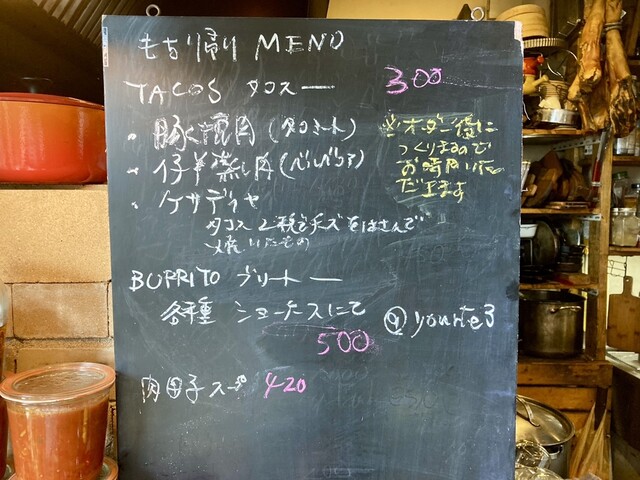 もち帰り MENO
TACOS タコス 300
・豚ひき肉(タコミート)
・仔羊蒸し肉(バルバコア)
・ケサディヤ
タコス2枚でチーズをはさんで
焼いたもの
※オーダー後に
つくりますので
お時間いた
だきます
BURRITO ブリートー
各種 ショーケースにて
500
@yourie3
肉団子スープ 420